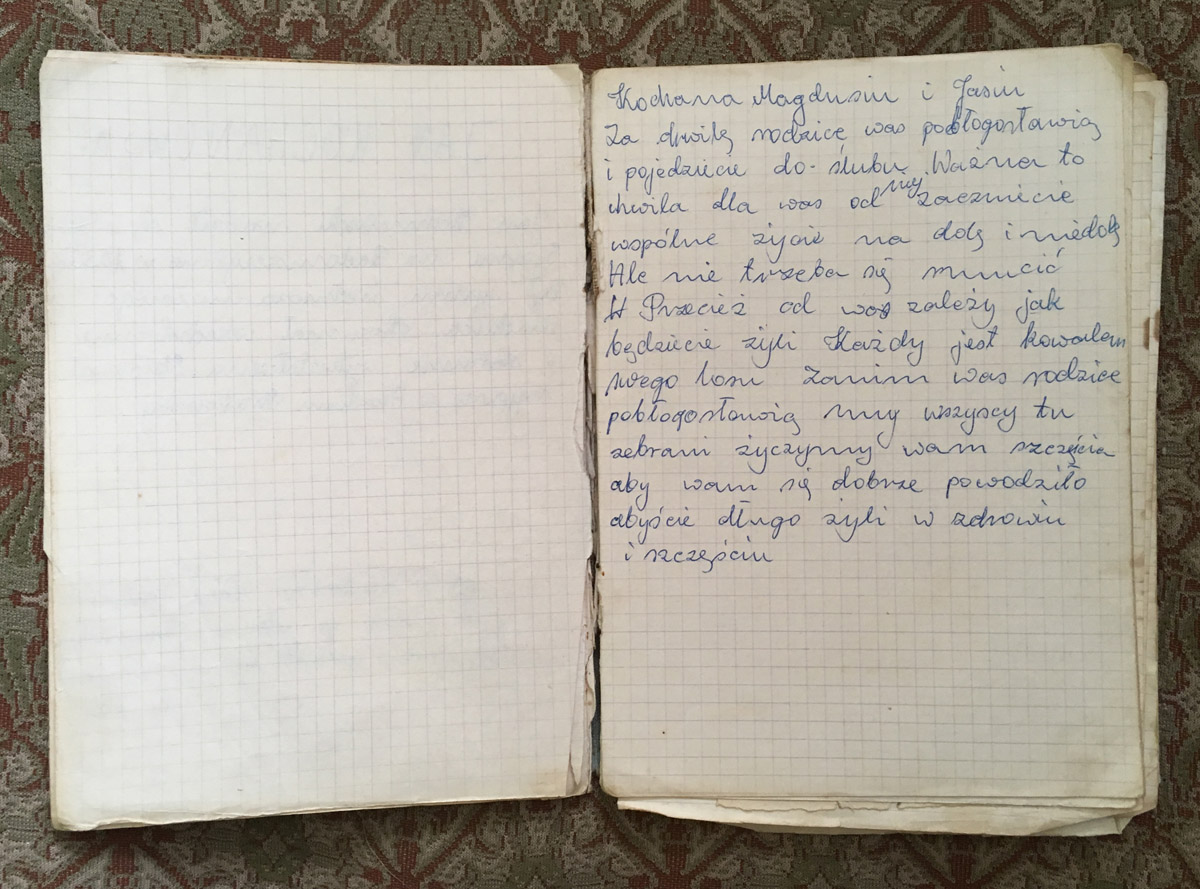 Kochana Magdusiu i Jasiu
Za chwilę rodzice was pobłogosławią
i pojedziecie do ślubu Ważna to
chwila dla was od niej zaczniecie
wspólne życie na dolę i niedolę
Ale nie trzeba się smucić
Przecież od was zależy jak
będziecie żyli Każdy jest kowalem
swego losu Zanim was rodzice
pobłogosławią my wszyscy tu
zebrani życzymy wam szczęścia
aby wam się dobrze powodziło
abyście długo żyli w zdrowiu
i szczęściu